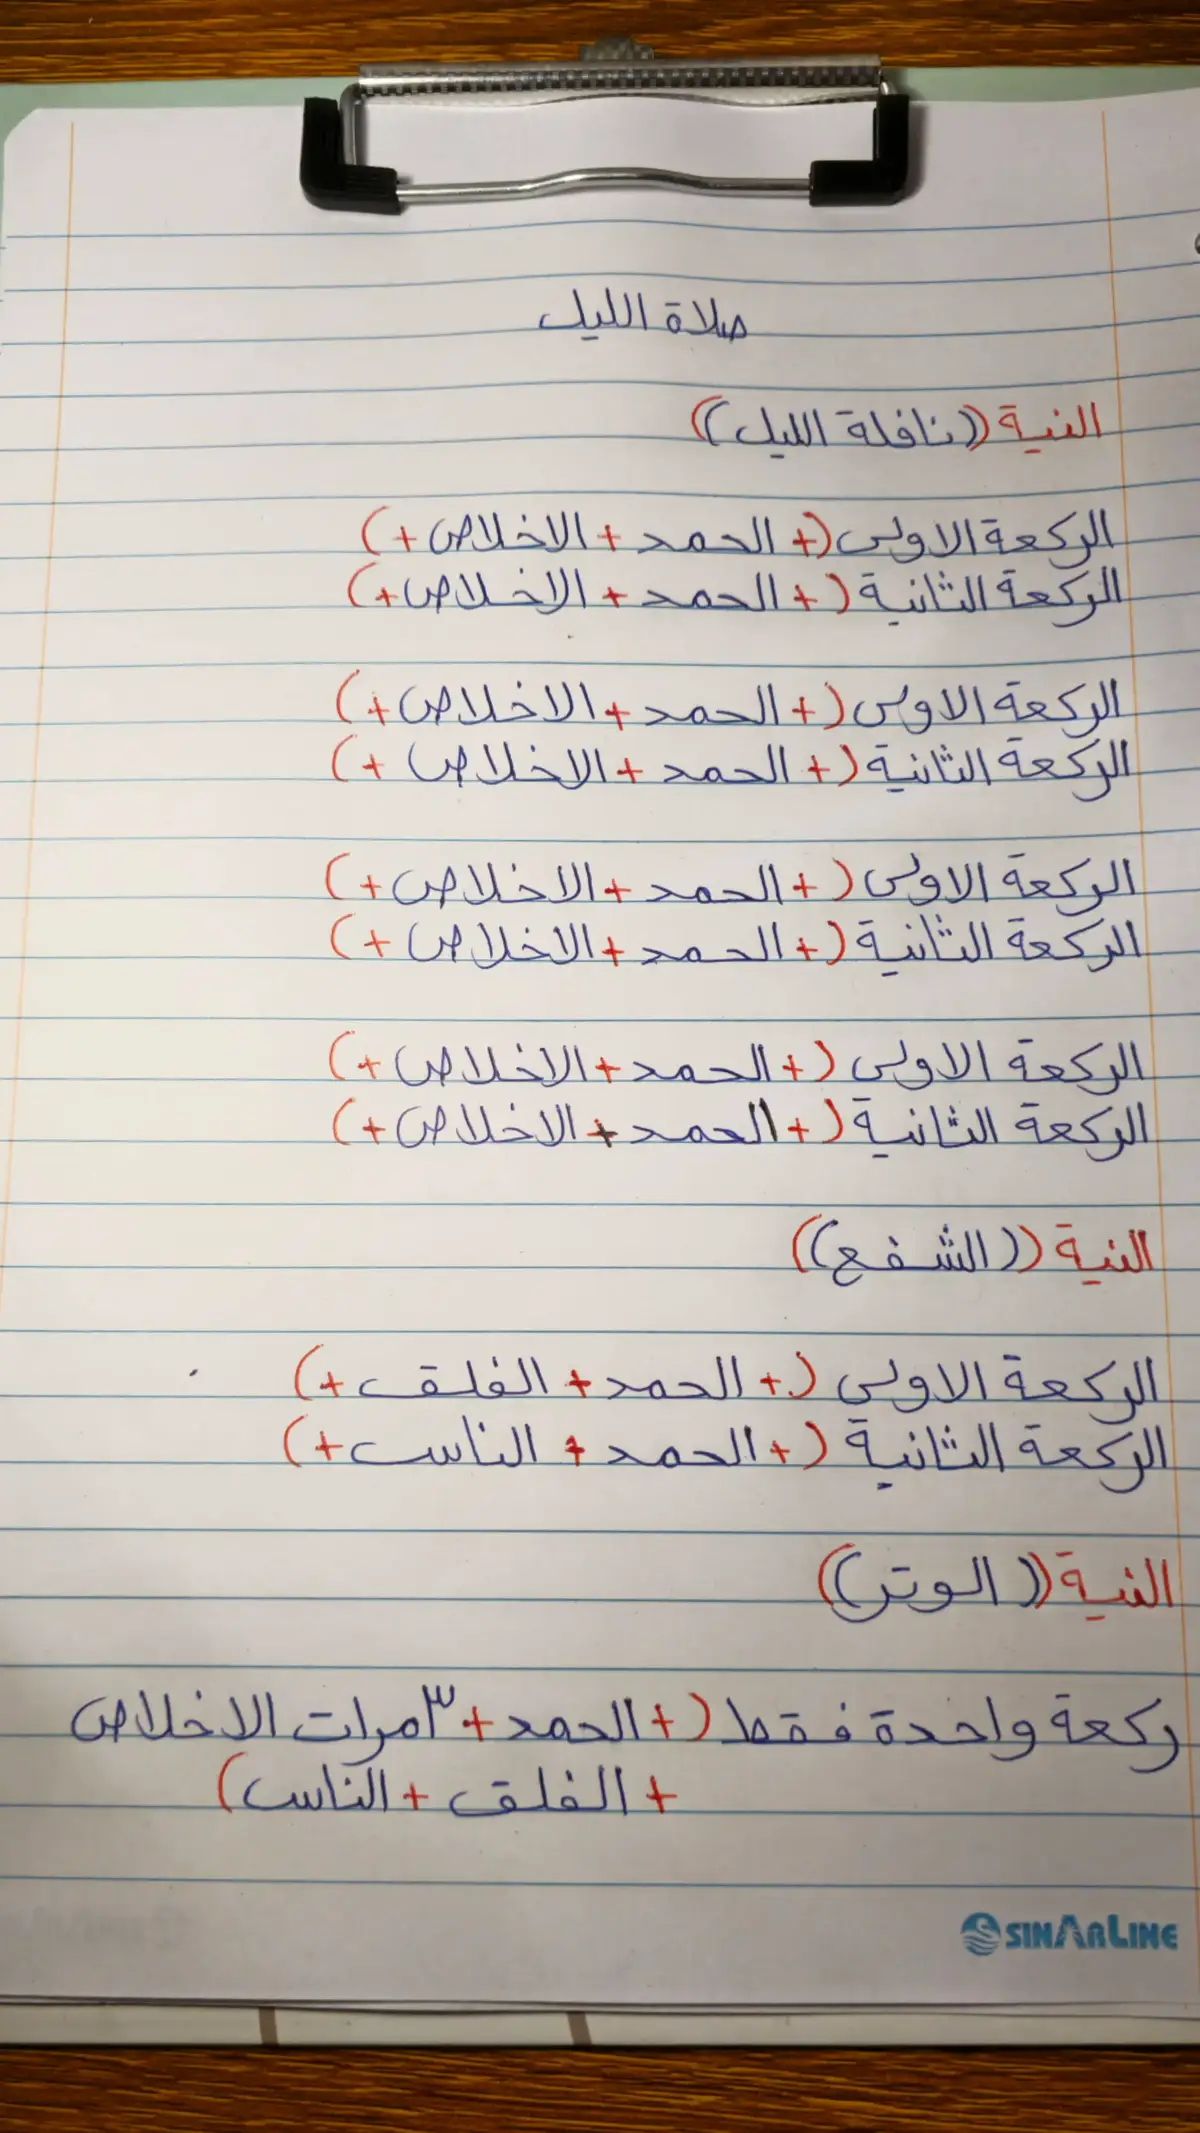 صلاة الليل
النية ((نافلة الليل))
الركعة الاولى (+ الحمد + الاخلاص +)
الركعة الثانية (+ الحمد + الاخلاص +)
الركعة الاولى (+ الحمد + الاخلاص +)
الركعة الثانية (+ الحمد + الاخلاص +)
الركعة الاولى (+ الحمد + الاخلاص +)
الركعة الثانية (+ الحمد + الاخلاص +)
الركعة الاولى (+ الحمد + الاخلاص +)
الركعة الثانية (+ الحمد + الاخلاص +)
النية ((الشفع))
الركعة الاولى (+ الحمد + الفلق +)
الركعة الثانية (+ الحمد + الناس +)
النية ((الوتر))
ركعة واحدة فقط (+ الحمد + ٣ مرات الاخلاص
+ الفلق + الناس)
SINARLINE